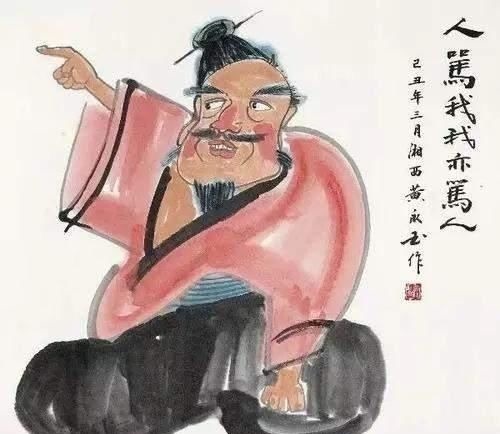 人罵我我亦罵人
己丑年三月湘西黄永玉作